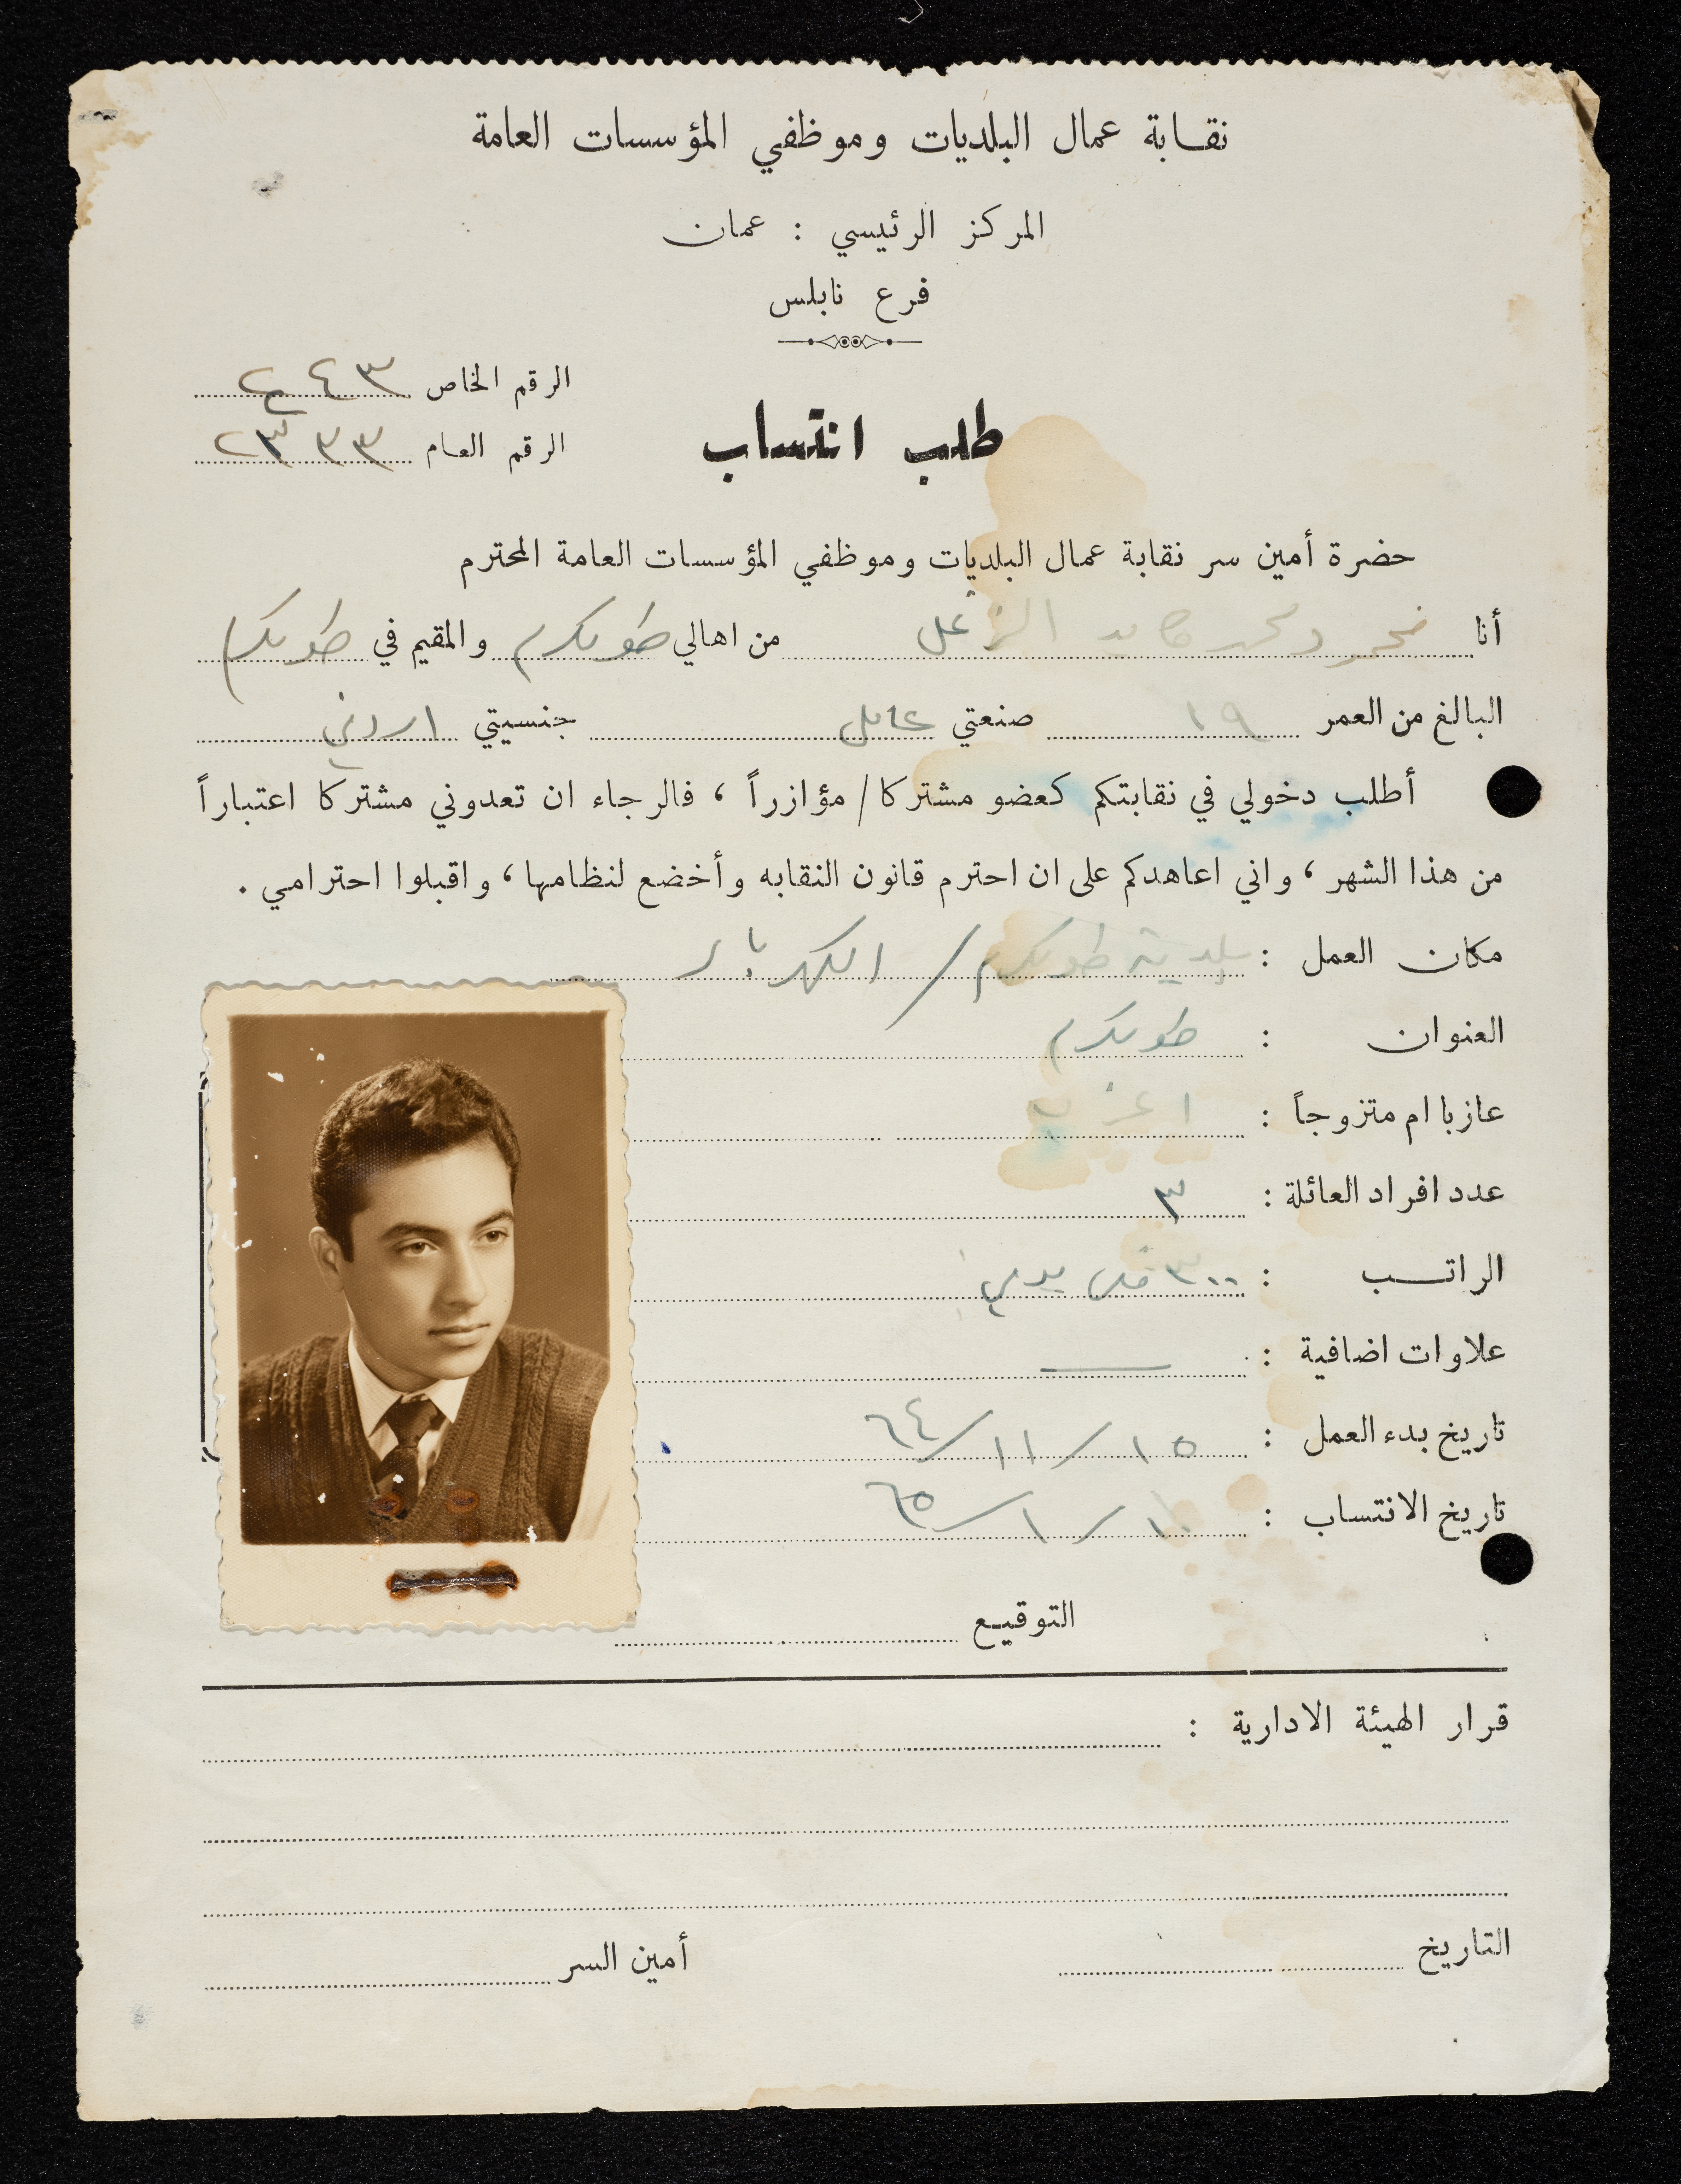 نقابة عمال البلديات وموظفي المؤسسات العامة
المركز الرئيسي : عمان
فرع نابلس
الرقم الخاص
طلب انتساب
الرقم العام ٢٣٣٣
حضرة أمين سر نقابة عمال البلديات وموظفي المؤسسات العامة المحترم
أنا محمود محمد من اهالي طولكرم والمقيم في طولكرم
البالغ من العمر ١٩ صنعتي عامل جنسيتي اردني
أطلب دخولي في نقابتكم كعضو مشتركا / مؤازراً ، فالرجاء ان تعدوني مشتركا اعتباراً
من هذا الشهر ، واني اعاهدكم على ان احترم قانون النقابه وأخضع لنظامها ، واقبلوا احترامي .
مكان العمل : بلدية طولكرم / الكهرباء
العنوان : طولكرم
عازبا ام متزوجاً : اعزب
عدد افراد العائلة : ٣
الراتب : ٣٠٠ فلس يومي
علاوات اضافية :
تاريخ بدء العمل : ١٥ / ١١ / ٦٤
تاريخ الانتساب : ١٠ / ١ / ٦٥
التوقيع
قرار الهيئة الادارية :
التاريخ أمين السر